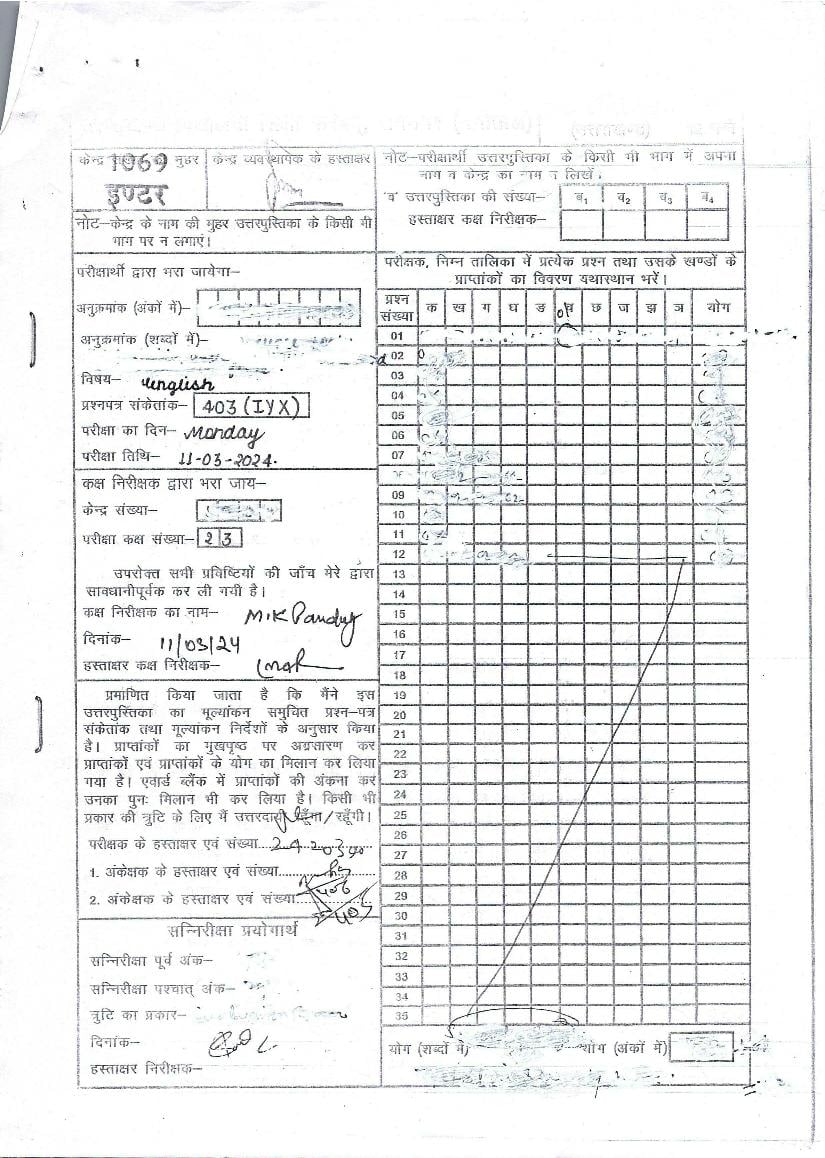 केन्द्र संख्या की मुहर
1069
इण्टर
केन्द्र व्यवस्थापक के हस्ताक्षर
नोट–केन्द्र के नाम की मुहर उत्तरपुस्तिका के किसी भी
भाग पर न लगाएं।
परीक्षार्थी द्वारा भरा जायेगा–
अनुक्रमांक (अंकों में)–
अनुक्रमांक (शब्दों में)–
विषय– English
प्रश्नपत्र संकेतांक– 403 (IYX)
परीक्षा का दिन– Monday
परीक्षा तिथि– 11-03-2024.
कक्ष निरीक्षक द्वारा भरा जाय–
केन्द्र संख्या–
परीक्षा कक्ष संख्या– 2 3
उपरोक्त सभी प्रविष्टियों की जाँच मेरे द्वारा
सावधानीपूर्वक कर ली गयी है।
कक्ष निरीक्षक का नाम– M.K Pandey
दिनांक– 11/03/24
हस्ताक्षर कक्ष निरीक्षक–
प्रमाणित किया जाता है कि मैंने इस
उत्तरपुस्तिका का मूल्यांकन समुचित प्रश्न-पत्र
संकेतांक तथा मूल्यांकन निर्देशों के अनुसार किया
है। प्राप्तांकों का मुखपृष्ठ पर अग्रसारण कर
प्राप्तांकों एवं प्राप्तांकों के योग का मिलान कर लिया
गया है। एवार्ड ब्लैंक में प्राप्तांकों की अंकना कर
उनका पुनः मिलान भी कर लिया है। किसी भी
प्रकार की त्रुटि के लिए मैं उत्तरदायी रहूँगा/रहूँगी।
परीक्षक के हस्ताक्षर एवं संख्या
1. अंकेक्षक के हस्ताक्षर एवं संख्या
2. अंकेक्षक के हस्ताक्षर एवं संख्या
सन्निरीक्षा प्रयोगार्थ
सन्निरीक्षा पूर्व अंक–
सन्निरीक्षा पश्चात् अंक–
त्रुटि का प्रकार–
दिनांक–
हस्ताक्षर निरीक्षक–
नोट–परीक्षार्थी उत्तरपुस्तिका के किसी भी भाग में अपना
नाम व केन्द्र का नाम न लिखें।
'ब' उत्तरपुस्तिका की संख्या–
ब₁ ब₂ ब₃ ब₄
हस्ताक्षर कक्ष निरीक्षक–
परीक्षक, निम्न तालिका में प्रत्येक प्रश्न तथा उसके खण्डों के
प्राप्तांकों का विवरण यथास्थान भरें।
प्रश्न संख्या क ख ग घ ङ च छ ज झ ञ योग
01
02
03
04
05
06
07
09
10
11
12
13
14
15
16
17
18
19
20
21
22
23
24
25
26
27
28
29
30
31
32
33
34
35
योग (शब्दों में)
योग (अंकों में)